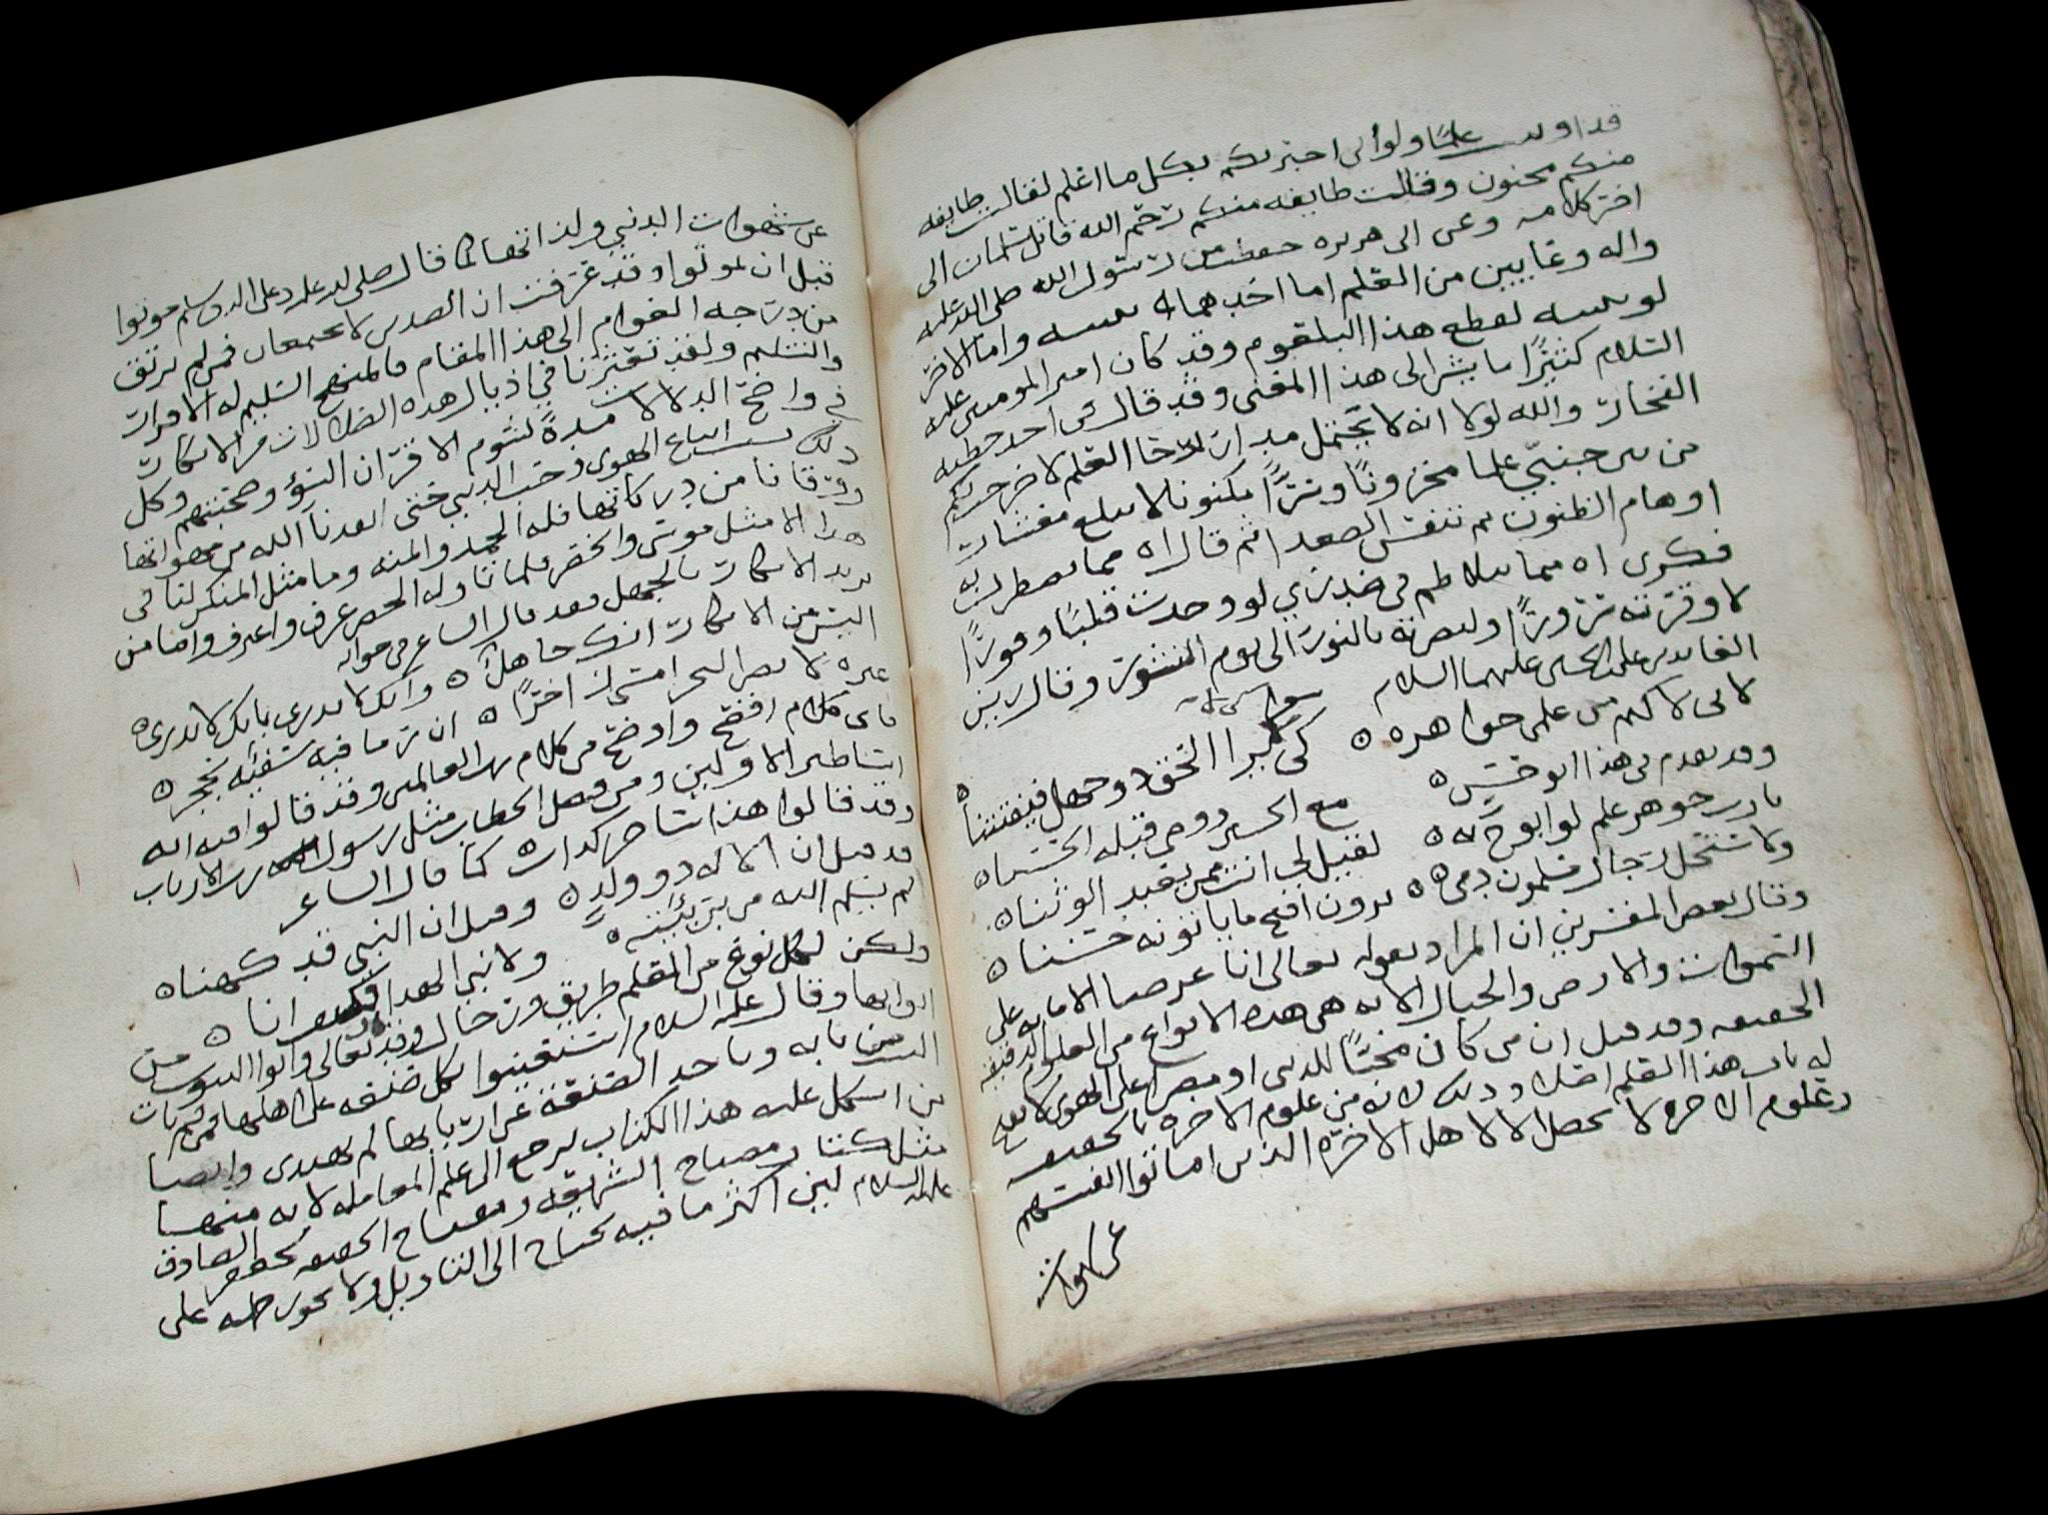 قد اوتيت علما ولو اني اخبرتكم بكل ما اعلم لقالت طايفه
منكم مجنون وقالت طايفه منكم رحم الله قاتل سلمان الى
اخر كلامه وعن ابي هريره حفظت من رسول الله صلى الله عليه
واله وعايين من العلم اما احدهما بسسه واما الاخر
لو بسسه لقطع هذا البلعوم وقد كان امير المومنين عليه
السلام كثيرا ما يشير الى هذا المعنى وقد قال في احد خطبه
والله لولا انه لا يحتمل العلم
من بين جنبي علما مخزونا وسرا مكنونا لا يبلغ معشاره
اوهام الظنون ثم تنفس الصعدا ثم قال اه مما يضطرب به
فكري اه مما يتلاطم في صدري لو وجدت قلبا وقورا
لاوقرته وزورا ولبصرته بالنور الى يوم النشور وقال زين
العابدين علي بن الحسين عليهما السلام
اني لاكتم من علمي جواهره ۞ كي لا يرا الحق ذو جهل فيفتتنا ۞
وقد تقدم في هذا ابو حسن ۞ مع الحسين ووصى قبله الحسنا ۞
يا رب جوهر علم لو ابوح به ۞ لقيل لي انت ممن يعبد الوثنا ۞
ولاستحل رجال مسلمون دمي ۞ يرون اقبح ما ياتونه حسنا ۞
وقال بعض المفسرين ان المراد بقوله تعالى انا عرضنا الامانه على
السموات والارض والجبال الايه هي هذه الانواع من العلوم الدقيقه
الحقيقه وقد قيل ان من كان محبا للدنيا او مصرا على الهوى لا يفتح
له باب هذا العلم اصلا وذلك لانه من علوم الاخره بالحقيقه
وعلوم الاخره لا تحصل الا لاهل الاخره الذين اماتوا انفسهم
عن شهوات
عن شهوات الدنيا ولذاتها كما قال صلى الله عليه وعلى اله وسلم موتوا
قبل ان تموتوا وقد عرفت ان الضدين لا يجتمعان فمن لم يرتق
من درجه العوام الى هذا المقام فالمنهج التسليم له الاقرار
والتسليم ولقد تعثرنا في اذيال هذه الضلالات من الانكار
في واضح الدلالات مدة لشوم الاقران السوء وصحبتهم وكل
ذلك بسبب اتباع الهوى وحب الدنيا حتى انقذنا الله من مهواتها
ورقانا من دركاتها فله الحمد والمنه وما مثل المنكر لنا في
هذا الا مثل موسى والخضر فلما تاوله الخضر عرف واعترف واما من
يريد الانكار بالجهل فقد قال الشاعر في جوابه
اليس من الانكار انك جاهل ۞ وانك لا تدري بانك لا تدري ۞
غيره لا يضر البحر امسى زاخرا ۞ ان رما فيه سفيه بحجر ۞
فاي كلام افصح واوضح من كلام رب العالمين وقد قالوا فيه انه
اساطير الاولين ومن فصل الخطاب مثل رسول رب الارباب
وقد قالوا هذا ساحر كذاب كما قال الشاعر
قد قيل ان الاله ذو ولد ۞ وقيل ان النبي قد كهنا ۞
لم يسلم الله من بريته ۞ ولا نبي الهدا فكيف انا ۞
ولكن لكل نوع من العلم طريق ورجال وقد قال تعالى واتوا البيوت من
ابوابها وقال عليه السلام استعينوا بكل صنعه على اهلها فمن لم يات
البيت من بابه وياخذ الصنعة عن اربابها لم يهتدى وايضا
من اشكل عليه هذا الكتاب يرجع الى علم المعامله لانه منها
مثل كتاب مصباح الشريعه ومفتاح الحقيقه لجعفر الصادق
عليه السلام ليس اكثر ما فيه يحتاج الى التاويل ولا يجوز حمله على